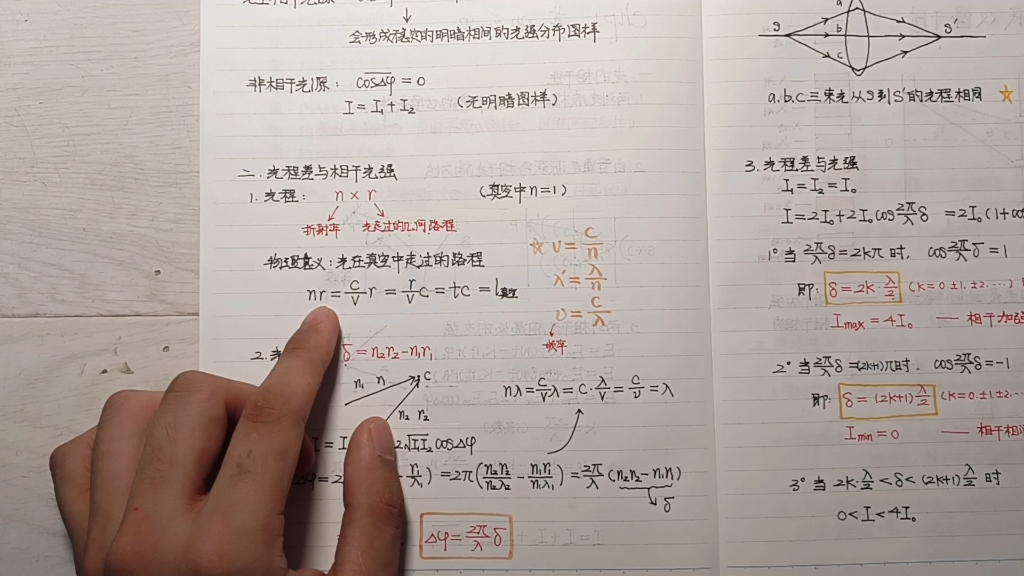 会形成稳定的明暗相间的光强分布图样
非相干光源: cosΔφ = 0
I = I₁ + I₂ (无明暗图样)
二. 光程差与相干光强
1. 光程: n × r (真空中 n=1)
折射率 光走过的几何路程
物理意义: 光在真空中走过的路程
nr = c/v r = r/v c = tc = l真空
☆ v = c/n
λ' = λ/n
υ = c/λ
频率
2. δ = n₂r₂ - n₁r₁
n₁ r₁ C
n₂ r₂
nλ = c/v λ = c · λ/v = c/υ = λ
2√I₁I₂ cosΔφ
Δφ = 2 - r₁/λ₁) = 2π(n₂r₂/n₂λ₂ - n₁r₁/n₁λ₁) = 2π/λ (n₂r₂ - n₁r₁)
δ
Δφ = 2π/λ δ
a
S b S'
c
a.b.c三束光从S到S'的光程相同 ☆
3. 光程差与光强
I₁ = I₂ = I₀
I = 2I₀ + 2I₀cos 2π/λ δ = 2I₀(1+cos
1° 当 2π/λ δ = 2kπ 时, cos 2π/λ δ = 1
即: δ = 2k·λ/2 (k=0.±1.±2.…)
Imax = 4I₀ — 相干加强
2° 当 2π/λ δ = (2k+1)π时. cos 2π/λ δ = -1
即: δ = (2k+1)λ/2 (k=0.±1.±2.…
Imin = 0 — 相干相消
3° 当 2k·λ/2 < δ < (2k+1)λ/2 时
0 < I < 4I₀